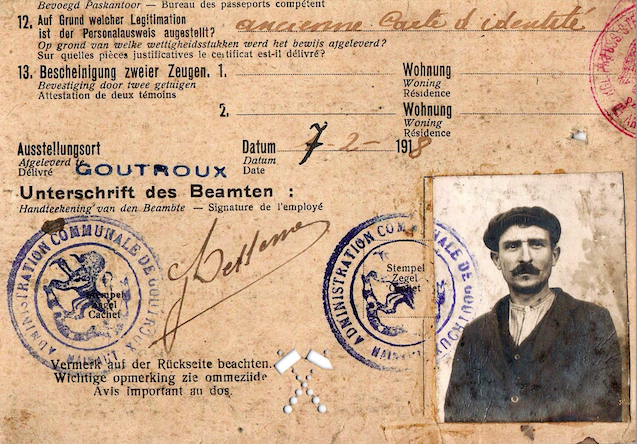 Bevoegd Paskantoor — Bureau des passeports compétent
12. Auf Grund welcher Legitimation
ist der Personalausweis augestellt?
ancienne Carte d'identité
Op grond van welke wettigheidsstukken werd het bewijs afgeleverd?
Sur quelles pièces justificatives le certificat est-il délivré?
13. Bescheinigung zweier Zeugen. 1. Wohnung
Bevestiging door twee getuigen Woning
Attestation de deux témoins Résidence
2. Wohnung
Woning
Résidence
Ausstellungsort Datum 7-2- 1918
Afgeleverd te Datum
Délivré GOUTROUX Date
Unterschrift des Beamten :
Handteekening van den Beambte — Signature de l'employé
ADMINISTRATION COMMUNALE DE GOUTROUX
HAINAUT
Stempel
Zegel
Cachet
ADMINISTRATION COMMUNALE DE GOUTROUX
HAINAUT
Stempel
Zegel
Cachet
Vermerk auf der Rückseite beachten.
Wichtige opmerking zie ommezijde
Avis important au dos.